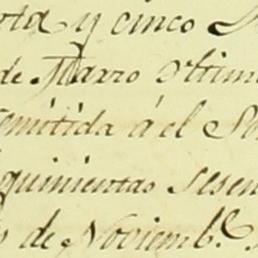 y cinco
de Marzo ultimo
remitida á el
quinientas sesen
de Noviemb.e